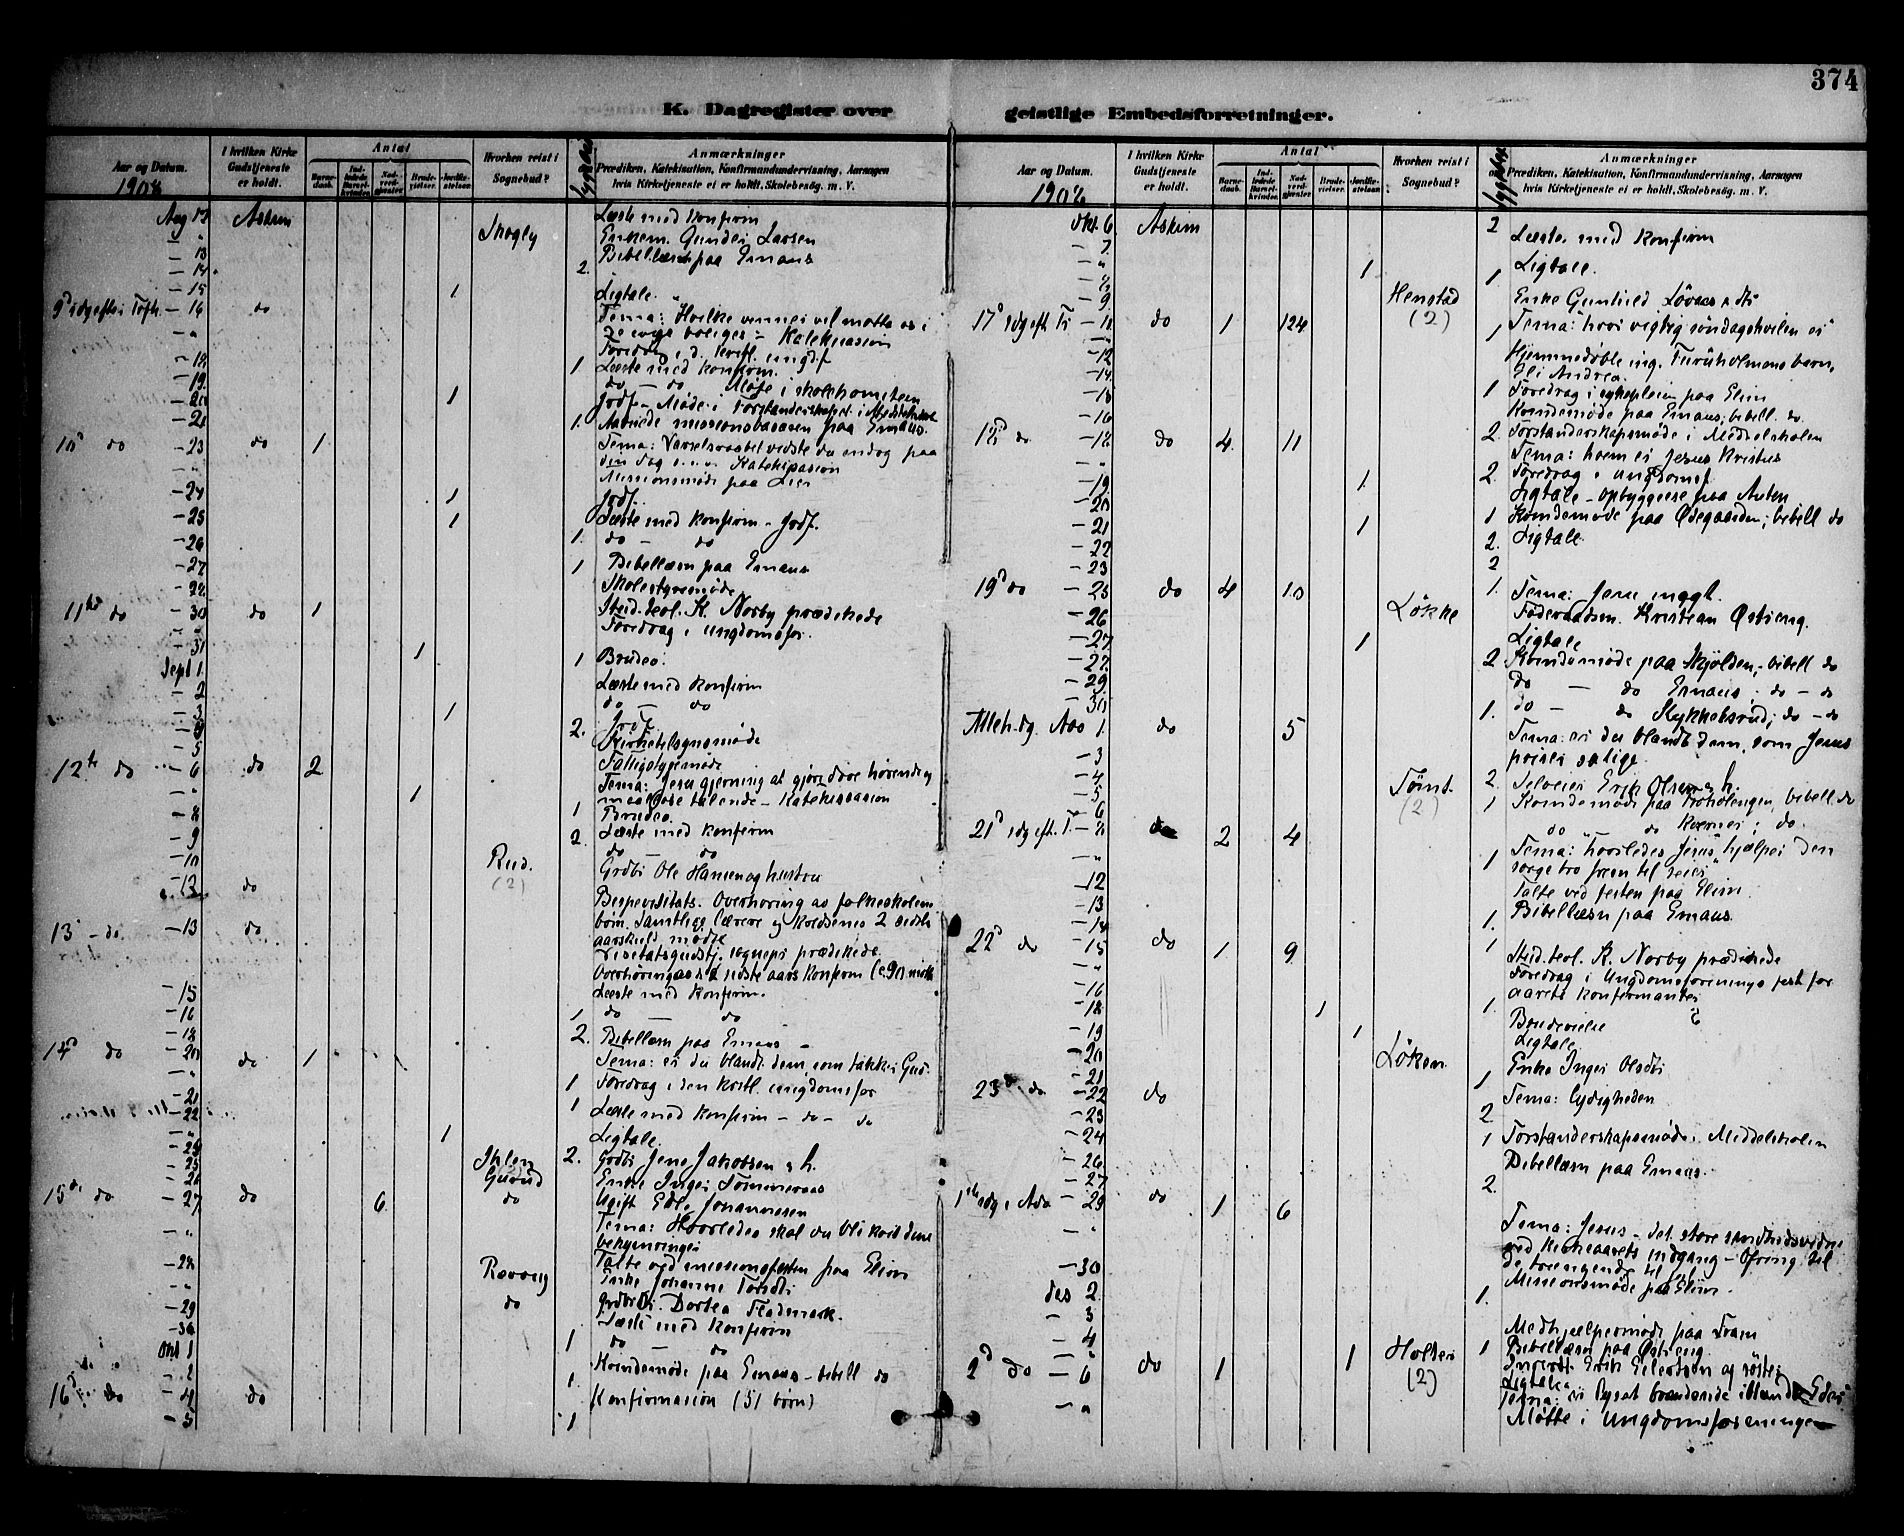 374
K. Dagregister over geistlige Embedsforretninger.
Aar og Datum. 1908
I hvilken Kirke Gudstjeneste er holdt.
Antal
Barnedaab.
Indledede Barselkvinder.
Nadverdgjæster.
Brudevielser.
Jordfæstelser.
Hvorhen reist i Sognebud?
Anmærkninger
Prædiken, Katekisation, Konfirmandundervisning, Aarsagen
hvis Kirketjeneste ei er holdt, Skolebesøg. m. V.
Aug 12 Askim Læste med konfirm
Skogly Enkem. Gunder Larsen
13 Bibellæsn paa Emaus
14 2.
15 1 Ligtale.
9d s dg efter Tofh. 16 do Tema: Hvilke venner vil motta os i
de evige boliger - Katekisasion
Foredrag i d. kristl. ungdf
18 1 Læste med konfirm.
19 do - do Møte i skolekomiteen
20 1 Jordf - Møde i Forstanderskapet i Meddelskole
21 1. Aapnede missionsbasaren paa Emaus.
10d do 23 do 1 Tema: Varselsraabet vidste du endog paa
den dag Katekisasion
Missionsmøde paa Lier
24 1 Jordf.
25 1 Læste med konfirm - Jordf.
26 1. do - do
27 1 Bibellæsn paa Emaus
28 Skolestyremøde
11te do 30 do 1 Stud. teol. K. Norby prædikede
Foredrag i ungdomsfor.
31 1
Sept 1. 1 Brudev.
2 Læste med konfirm
3 1 do - do
4 2. Jordf.
5 Kirketilsynsmøde
12te do 6 do 2 Fattigstyremøde
Tema: Jesu gjerning at gjøre døve hørende og
1 maalløse talende - Katekisasion
8 1 Brudev.
9 2. Læste med konfirm
10 do - do
Rud. (2) Grdbr Ole Hansen og hustru
12 do Bispevisitats. Overhøring av folkeskolens
børn. Samtlige lærere og kredsenes 2 sidste
aarskuld mødte
13 - do 13 do Visitatsgudstj. sognepr prædikede.
Overhøring av de 2 sidste aars konfirm (c 90 møtte
15 Læste med konfirm.
16 1 do - do
18 2. Bibellæsn paa Emaus
14d do 20 do 1 Tema: er du blandt dem, som takker Gud.
1 Foredrag i den kristl. ungdomsfor
21
22 1 Læste med konfirm - do - do
1 Ligtale.
24 Ihlen 2. Grdbr Jens Jakobsen & h.
25 Gurud Enke Inger Tømmeraas
26 do Ugift Edle Johannesen
15de do 27 do 6. Tema: Hvorledes skal du bli kvit dine
bekymringer
28 Talte ved missionsfesten paa Elim
Rovoug Enke Johanne Torsdtr
29 do Dortea Fladmark.
30 Læste med konfirm
Okt 1 1 do - do
2 1. Kvindemøde paa Emaus - bibell do
16d do 4 do Konfirmasion (51 børn)
5 1
Aar og Datum. 1908
I hvilken Kirke Gudstjeneste er holdt.
Antal
Barnedaab.
Indledede Barselkvinder.
Nadverdgjæster.
Brudevielser.
Jordfæstelser.
Hvorhen reist i Sognebud?
Anmærkninger
Prædiken, Katekisation, Konfirmandundervisning, Aarsagen
hvis Kirketjeneste ei er holdt, Skolebesøg. m. V.
Okt. 6 Askim 2 Læste med konfirm
7.
1 Ligtale.
8 1
9 Henstad (2) Enke Gunhild Løvaas
17d s dg eft. Tr 11 do 1 124 1 Tema: hvor vigtig søndagshvilen er
12 Hjemmedøbte ing. Furuholmens barn,
14 Eli Andrea
15 1 Foredrag i sykepleien paa Elim
16 Kvindemøde paa Emaus, bibell. do
18d do 18 do 4 11 2. Forstanderskapsmøde i Meddelskolen
Tema: hvem er Jesus Kristus
19 1 2. Foredrag i ungdomsf
20 Ligtale - opbyggelse paa Auten
21 1 1 Kvindemøde paa Ødegaarden; bibell do
22 2. Ligtale
23 2
19d do 25 do 4 10 1. Tema: Jesu
26 Løkke Føderaadsm. Kristian Østieng.
27 1 Ligtale
28 2 Kvindemøde paa Skjolden, bibell do
29 do - do Emaus; do - do
30 1. do - do Stykketsrud; do - do
Alleh.dg. Nov 1. do 5 Tema: er du blandt dem, som Jesus
priser salige.
3
4 Tømt. (2) 2. Selveier Erik Olsen & h.
5 1 Kvindemøde paa bibell. do
6 do do do.
21d s dg eft. T. 8 do 2 4 1 Tema: hvorledes Jesus hjælper den
svage tro frem til seier
12 Talte ved festen paa Elim
13 1. Bibellæsn paa Emaus
14
22d do 15 do 1 9 1 Stud. teol. K. Norby prædikede
Foredrag i Ungdomsforenings fest for
16 aarets konfirmanter
18 1 1. Brudevielse
19 1 Ligtale
20 Løken Enke Inger Olsdtr
21 1
23de do 22 do Tema: lydigheden
23 2
24 1 Forstanderskapsmøde i Meddelskolen
26 Bibellæsn paa Emaus.
27 2.
1ste s dg i Adv 29 do 1 6 Tema: Jesus - det store sandhedsvidne
ved kirkeaarets indgang - Ofring til
30 de trængende til jul
Missionsmøde paa Elim.
Des 2 1.
3 Medhjælpermøde paa Fram
4 1 Bibellæsn paa Østreng
2d do 6 do 1 1 Holter (2) Erik Eilertsen og søster
Ligtale
Tema: er lyset brændende i
Møtte i Ungdomsforeningen